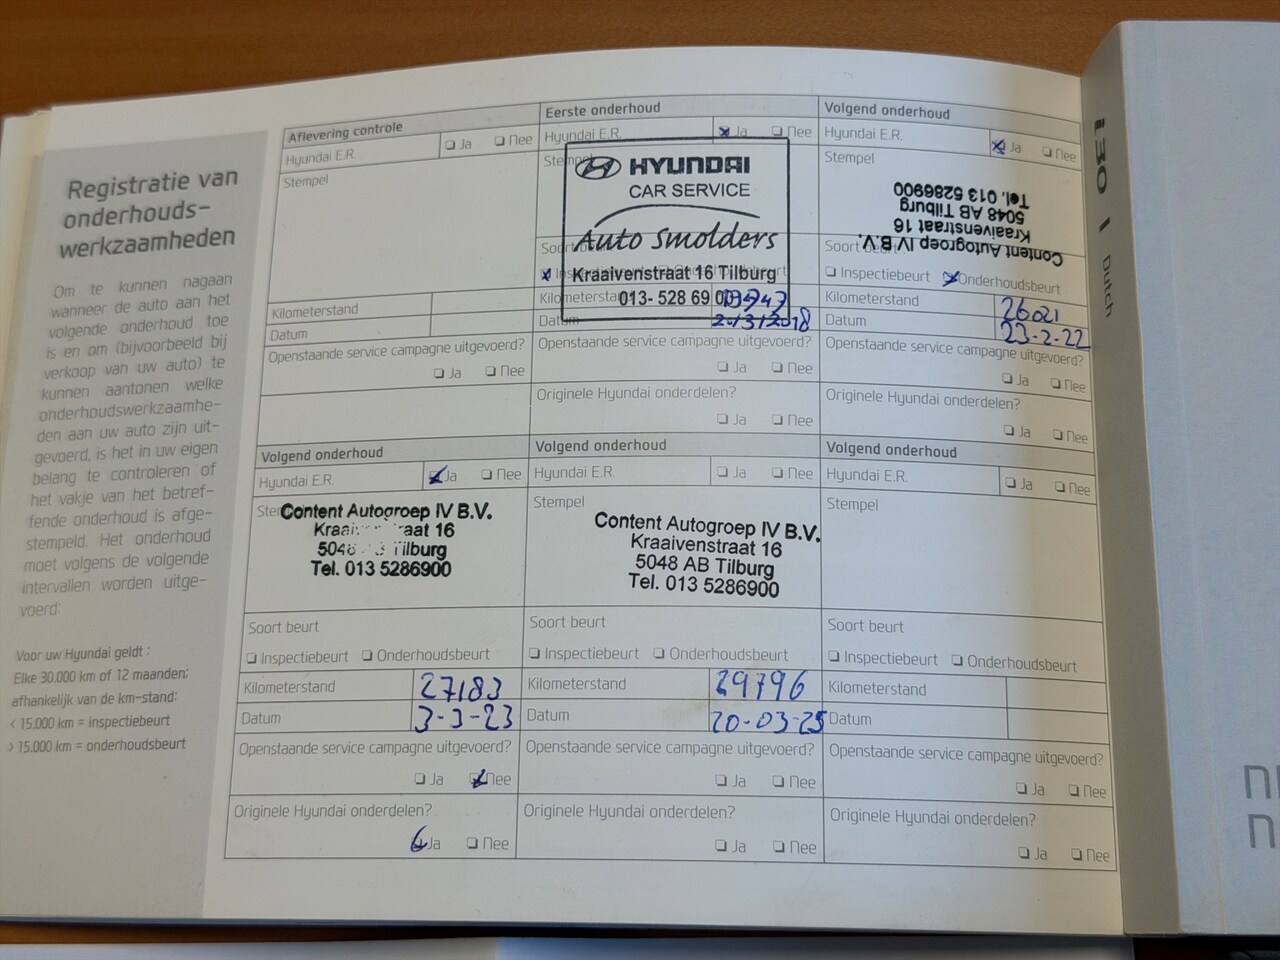 Registratie van
onderhouds-
werkzaamheden
Om te kunnen nagaan
wanneer de auto aan het
volgende onderhoud toe
is en om (bijvoorbeeld bij
verkoop van uw auto) te
kunnen aantonen welke
onderhoudswerkzaamhe-
den aan uw auto zijn uit-
gevoerd, is het in uw eigen
belang te controleren of
het vakje van het betref-
fende onderhoud is afge-
stempeld. Het onderhoud
moet volgens de volgende
intervallen worden uitge-
voerd:
Voor uw Hyundai geldt :
Elke 30.000 km of 12 maanden;
afhankelijk van de km-stand:
< 15.000 km = inspectiebeurt
> 15.000 km = onderhoudsbeurt
Aflevering controle
Hyundai E.R. Ja Nee
Stempel
Kilometerstand
Datum
Openstaande service campagne uitgevoerd?
Ja Nee
Eerste onderhoud
Hyundai E.R. Ja Nee
HYUNDAI
CAR SERVICE
Auto Smolders
Kraaivenstraat 16 Tilburg
013- 528 69 00
Datum 2/3/2018
Openstaande service campagne uitgevoerd?
Ja Nee
Originele Hyundai onderdelen?
Ja Nee
Volgend onderhoud
Hyundai E.R. Ja Nee
Stempel
Content Autogroep IV B.V.
Kraaivenstraat 16
5048 AB Tilburg
Tel. 013 5286900
Soort
Inspectiebeurt Onderhoudsbeurt
Kilometerstand 26021
Datum 23-2-22
Openstaande service campagne uitgevoerd?
Ja Nee
Originele Hyundai onderdelen?
Ja Nee
Volgend onderhoud
Hyundai E.R. Ja Nee
Content Autogroep IV B.V.
16
Tilburg
Tel. 013 5286900
Soort beurt
Inspectiebeurt Onderhoudsbeurt
Kilometerstand 27183
Datum 3-3-23
Openstaande service campagne uitgevoerd?
Ja Nee
Originele Hyundai onderdelen?
Ja Nee
Volgend onderhoud
Hyundai E.R. Ja Nee
Stempel
Content Autogroep IV B.V.
Kraaivenstraat 16
5048 AB Tilburg
Tel. 013 5286900
Soort beurt
Inspectiebeurt Onderhoudsbeurt
Kilometerstand 29796
Datum 20-03-25
Openstaande service campagne uitgevoerd?
Ja Nee
Originele Hyundai onderdelen?
Ja Nee
Volgend onderhoud
Hyundai E.R. Ja Nee
Stempel
Soort beurt
Inspectiebeurt Onderhoudsbeurt
Kilometerstand
Datum
Openstaande service campagne uitgevoerd?
Ja Nee
Originele Hyundai onderdelen?
Ja Nee
i30 | Dutch